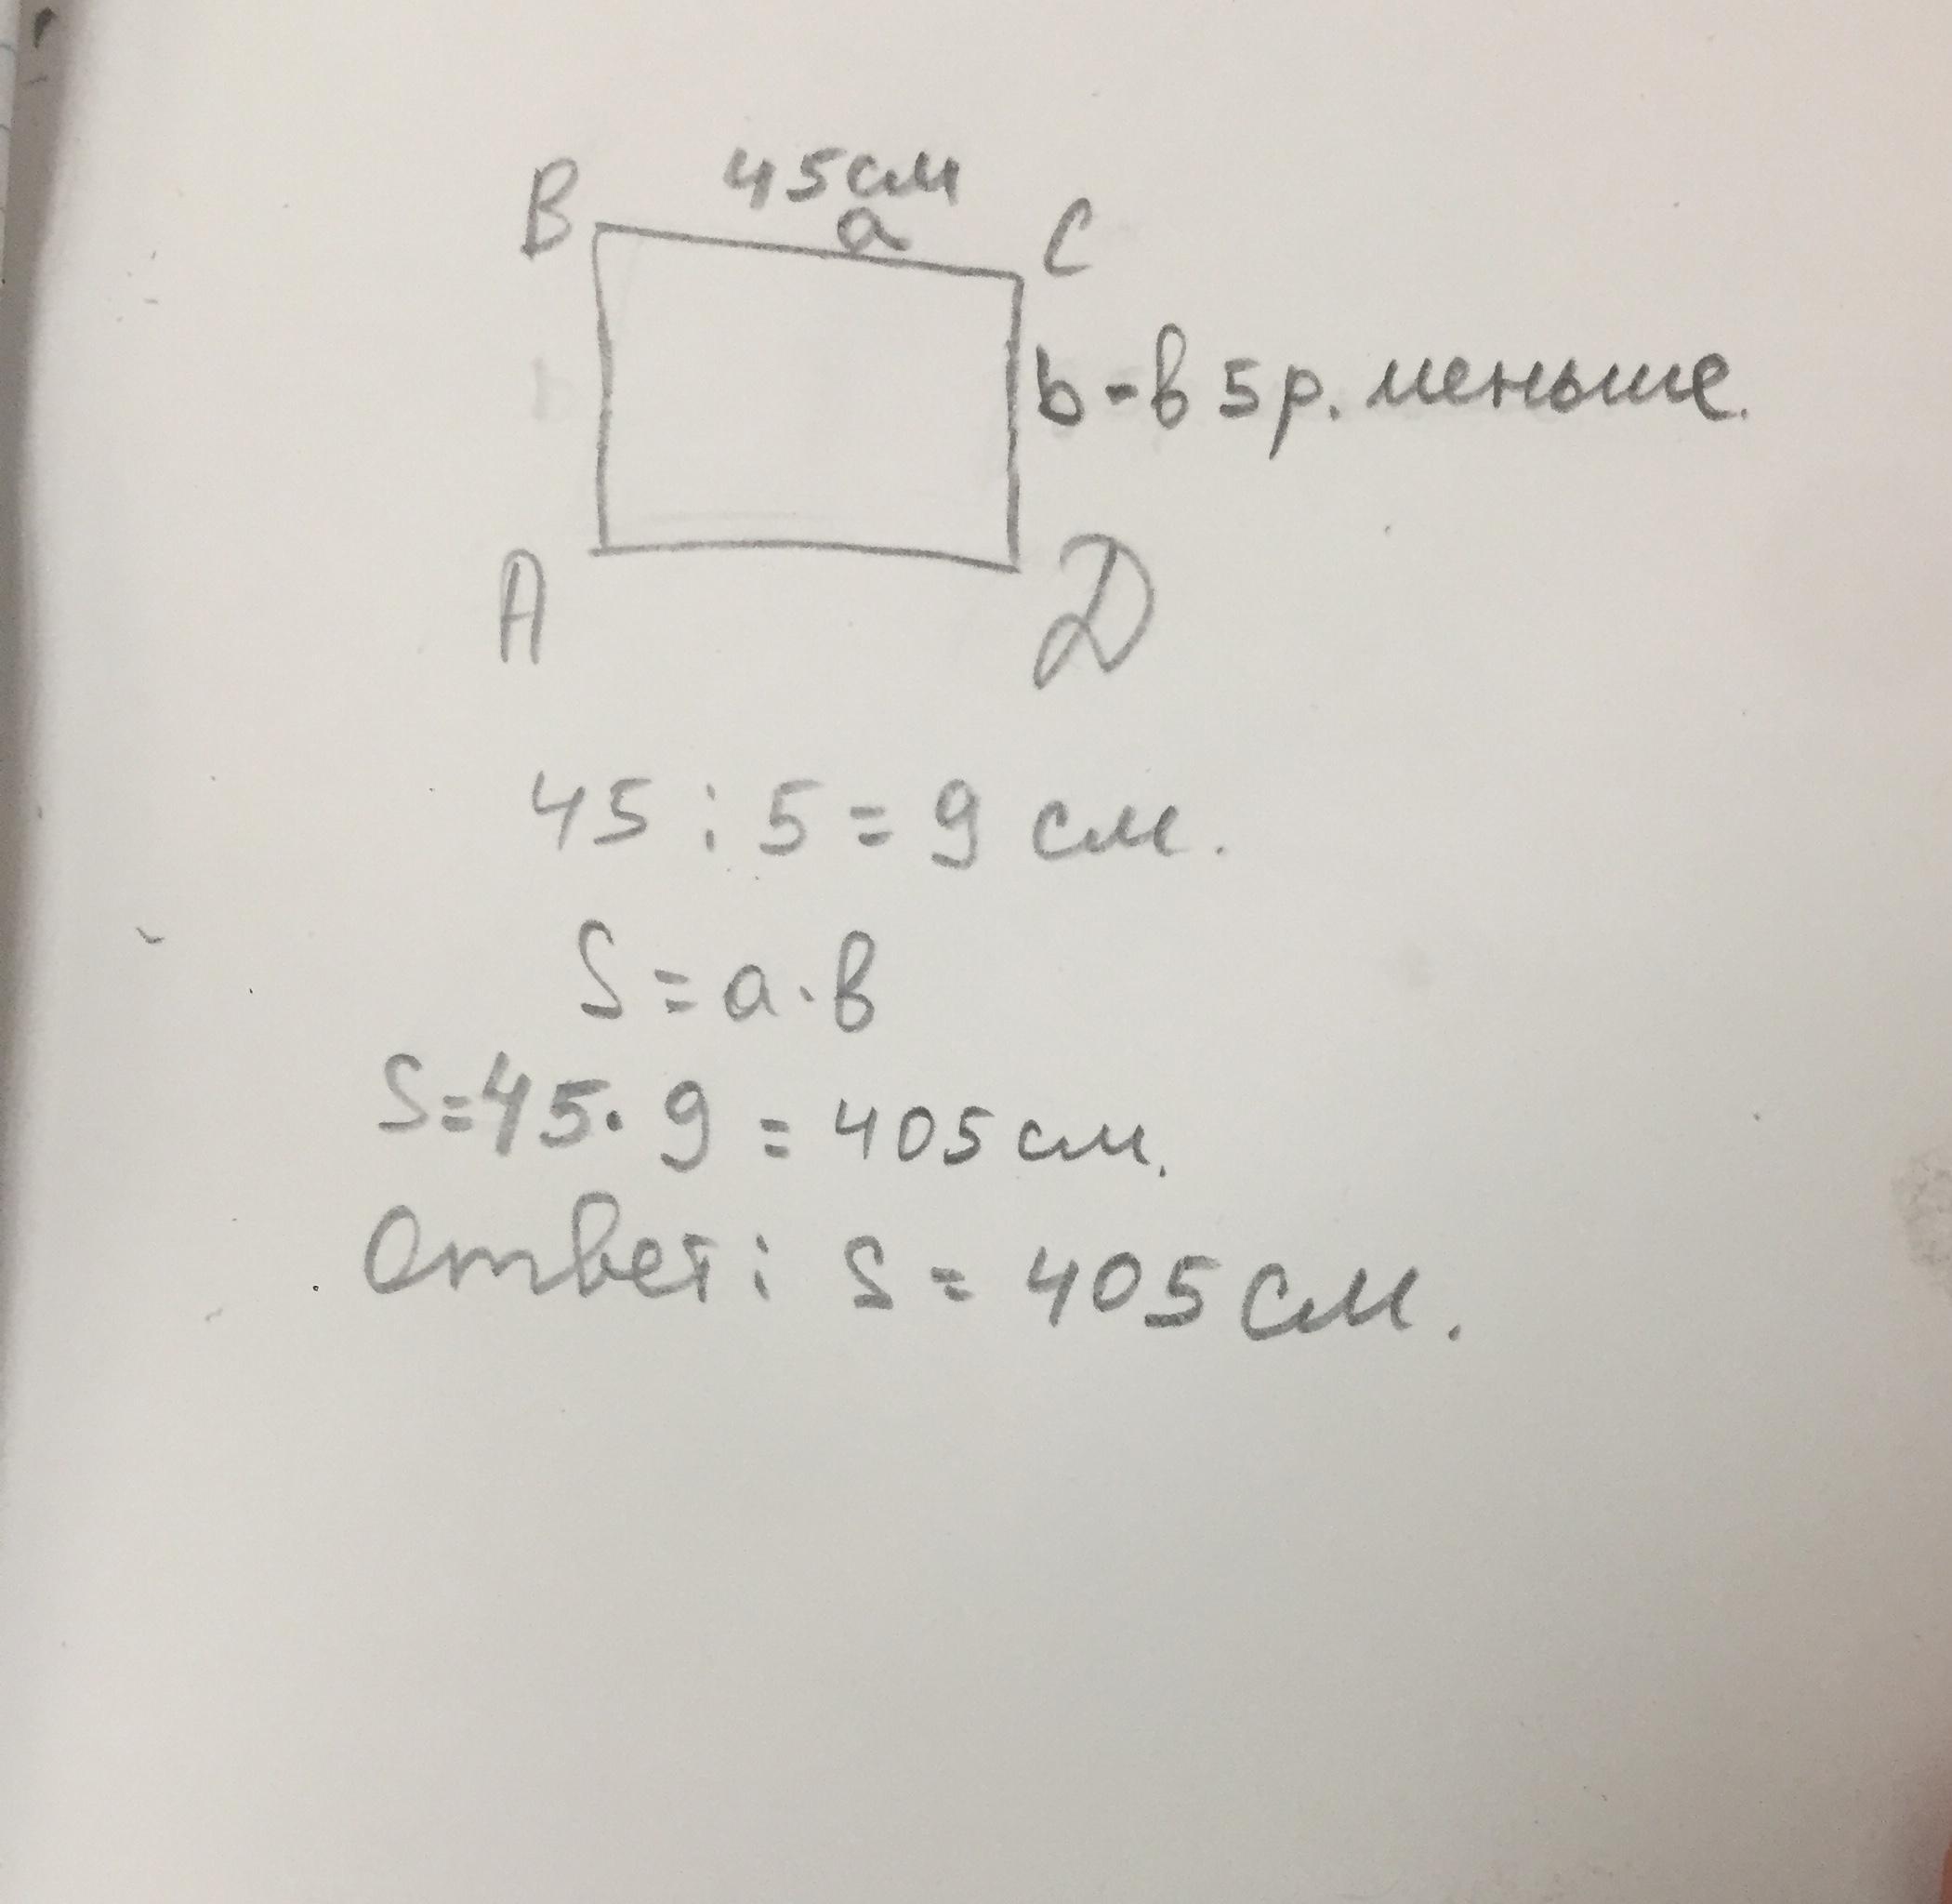 45см
B a C
b - в 5 р. меньше.
A D
45 : 5 = 9 см.
S = a · в
S = 45 · 9 = 405 см.
Ответ: S = 405 см.